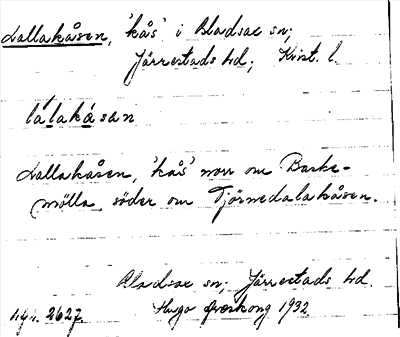 Lallakåsen, 'kås' i Bladsax sn;
Järrestads hd; Krist. l.
lálakǻsan
Lallakåsen, 'kås' norr om Baske-
mölla, söder om Tjörnedalakåsen.
Bladsax sn; Järrestads hd.
Hugo Areskoug 1932
2627